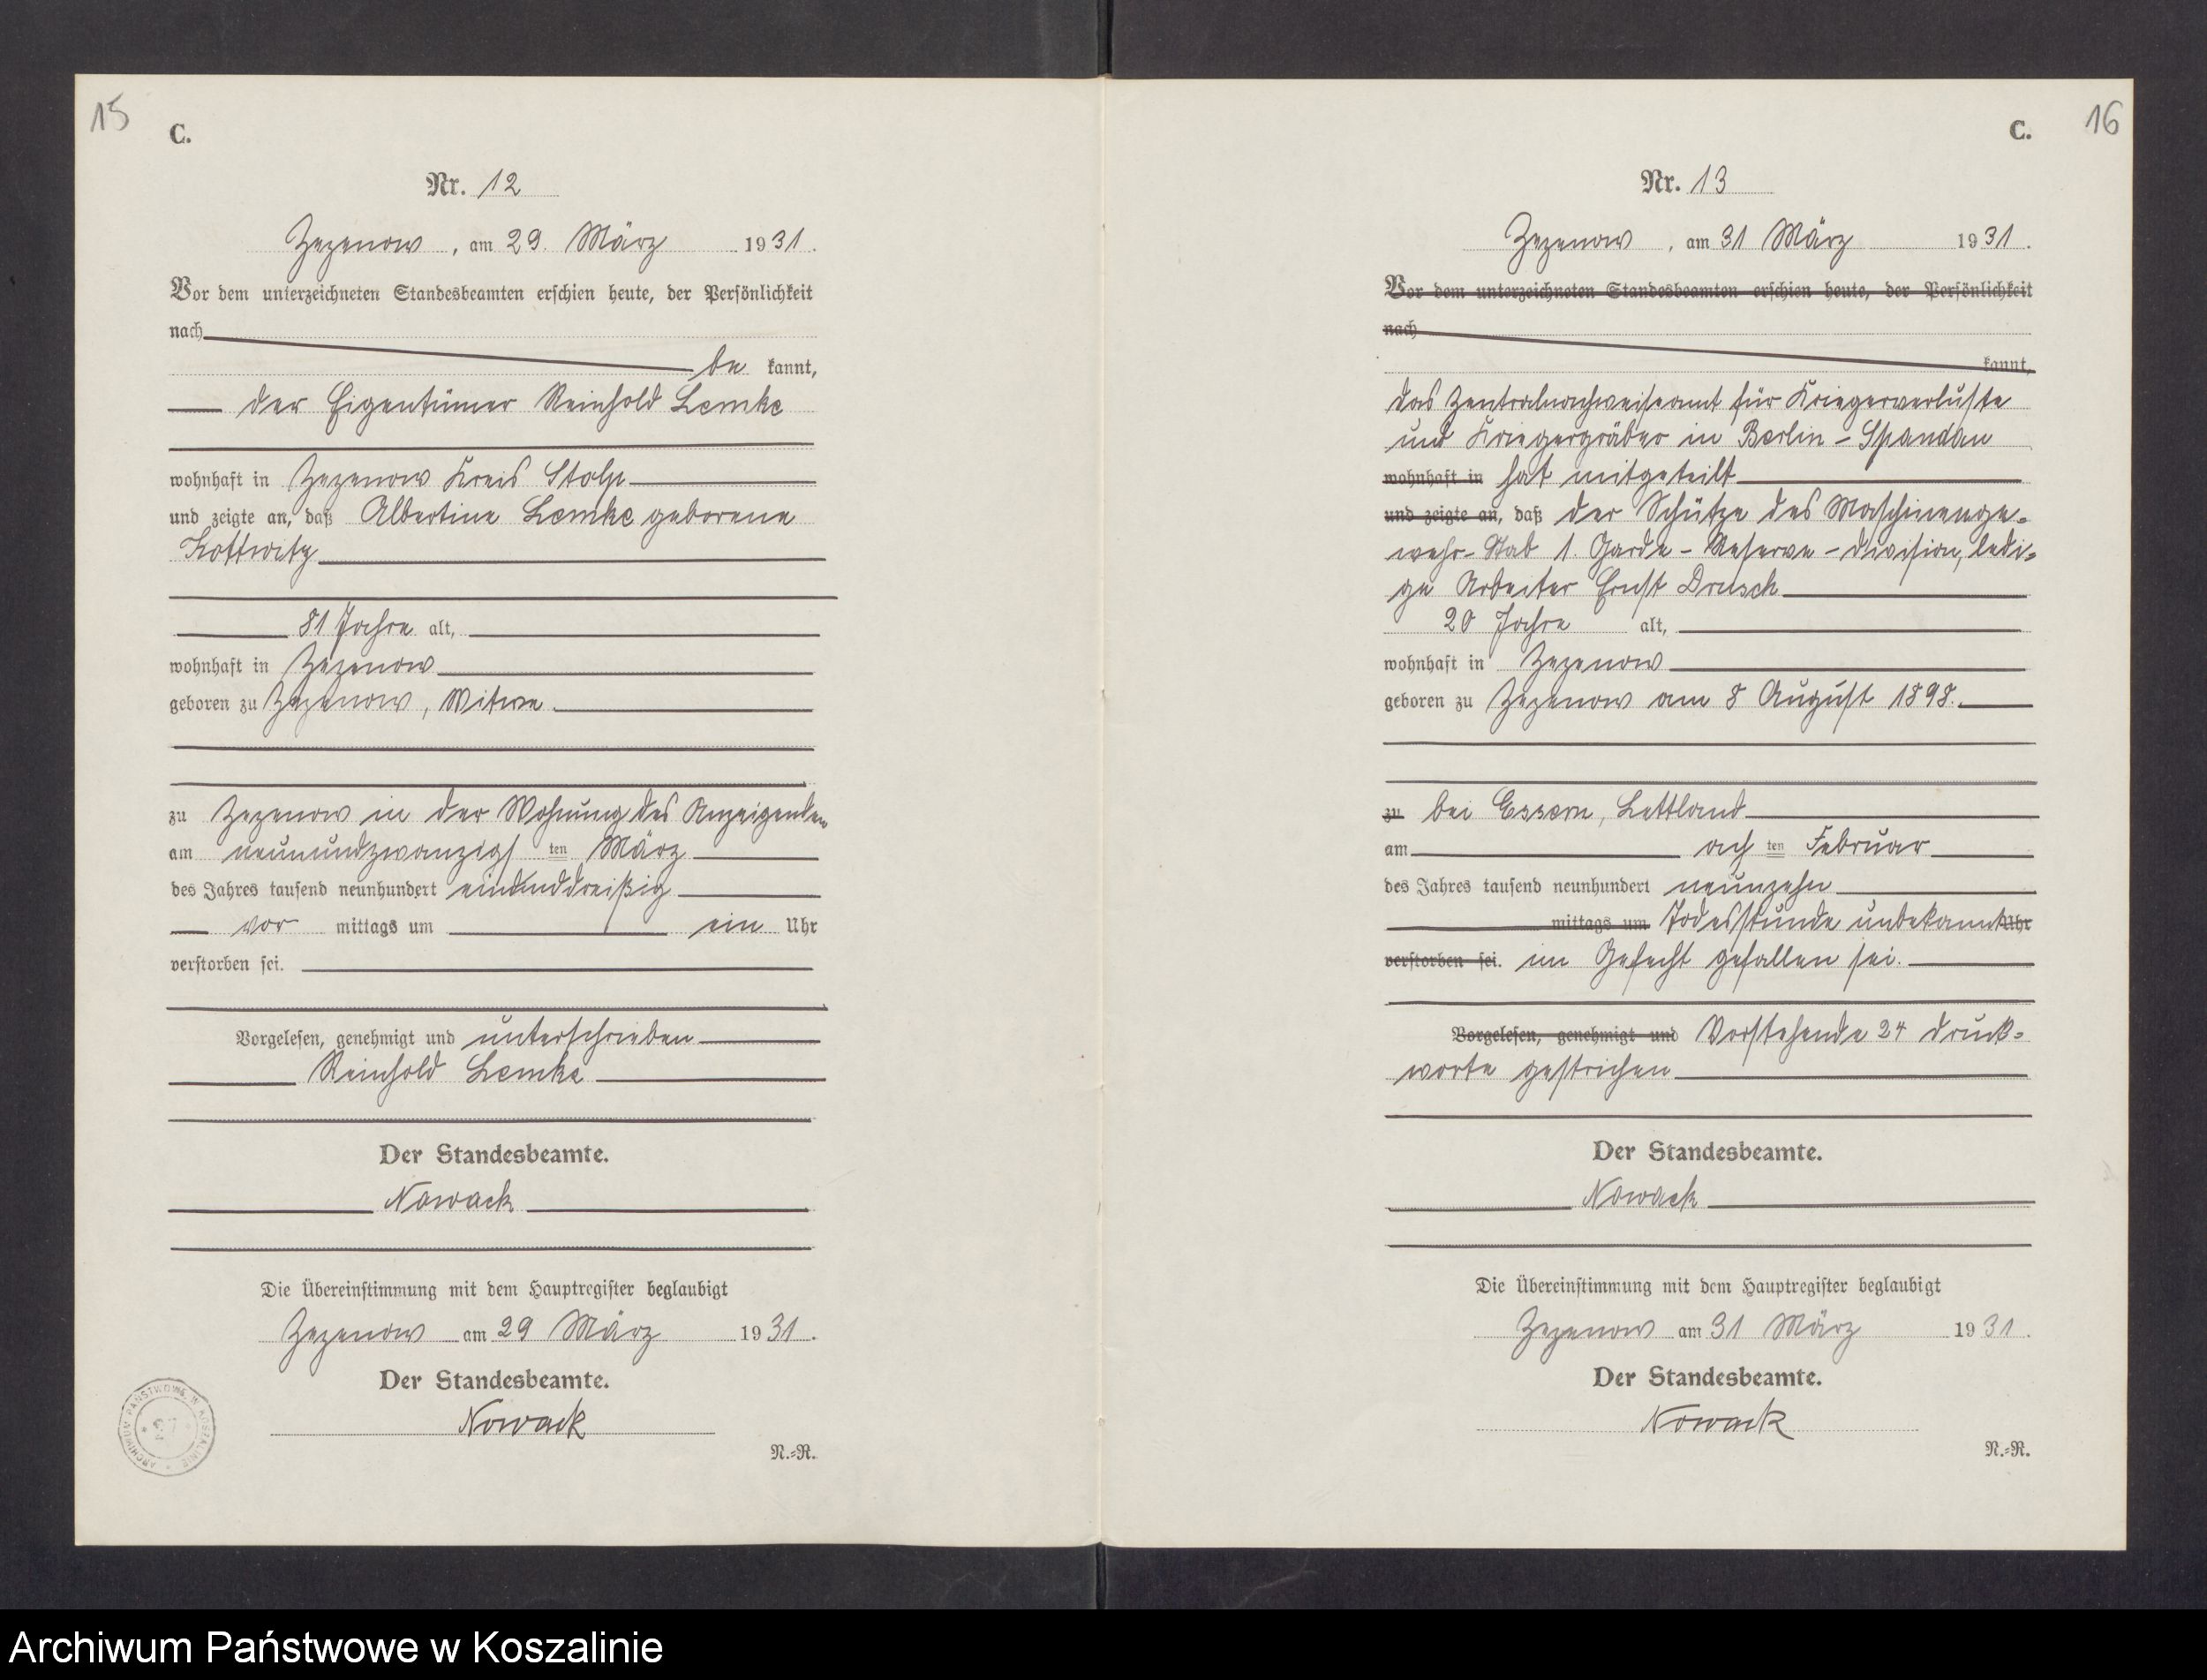 15
C.
Nr. 12
Zezenow, am 29. März 1931.
Vor dem unterzeichneten Standesbeamten erschien heute, der Persönlichkeit
nach
be kannt,
der Eigentümer Reinhold Lemke
wohnhaft in Zezenow Kreis Stolp
und zeigte an, daß Albertine Lemke geborene
Kottwitz
81 Jahre alt,
wohnhaft in Zezenow
geboren zu Zezenow, Witwe
zu Zezenow in der Wohnung des Anzeigenden
am neunundzwanzigs ten März
des Jahres tausend neunhundert einunddreißig
vor mittags um ein Uhr
verstorben sei.
Vorgelesen, genehmigt und unterschrieben
Reinhold Lemke
Der Standesbeamte.
Nowack
Die Übereinstimmung mit dem Hauptregister beglaubigt
Zezenow am 29 März 1931.
Der Standesbeamte.
Nowack
N.=R.
ARCHIWUM PAŃSTWOWE W KOSZALINIE
16
C.
Nr. 13
Zezenow, am 31 März 1931.
Vor dem unterzeichneten Standesbeamten erschien heute, der Persönlichkeit
nach
kannt,
das Zentralnachweiseamt für Kriegerverluste
und Kriegergräber in Berlin - Spandau
wohnhaft in hat mitgeteilt
und zeigte an, daß der Schütze des Maschinenge=
wehr-Stab 1. Garde - Reserve - Division, ledi=
ge Arbeiter Ernst Drusch
20 Jahre alt,
wohnhaft in Zezenow
geboren zu Zezenow am 8 August 1898.
zu bei Essern, Lettland
am ach ten Februar
des Jahres tausend neunhundert neunzehn
mittags um Todesstunde unbekannt Uhr
verstorben sei. im Gefecht gefallen sei.
Vorgelesen, genehmigt und Vorstehende 24 Druck=
worte gestrichen
Der Standesbeamte.
Nowack
Die Übereinstimmung mit dem Hauptregister beglaubigt
Zezenow am 31 März 1931.
Der Standesbeamte.
Nowack
N.=R.
Archiwum Państwowe w Koszalinie